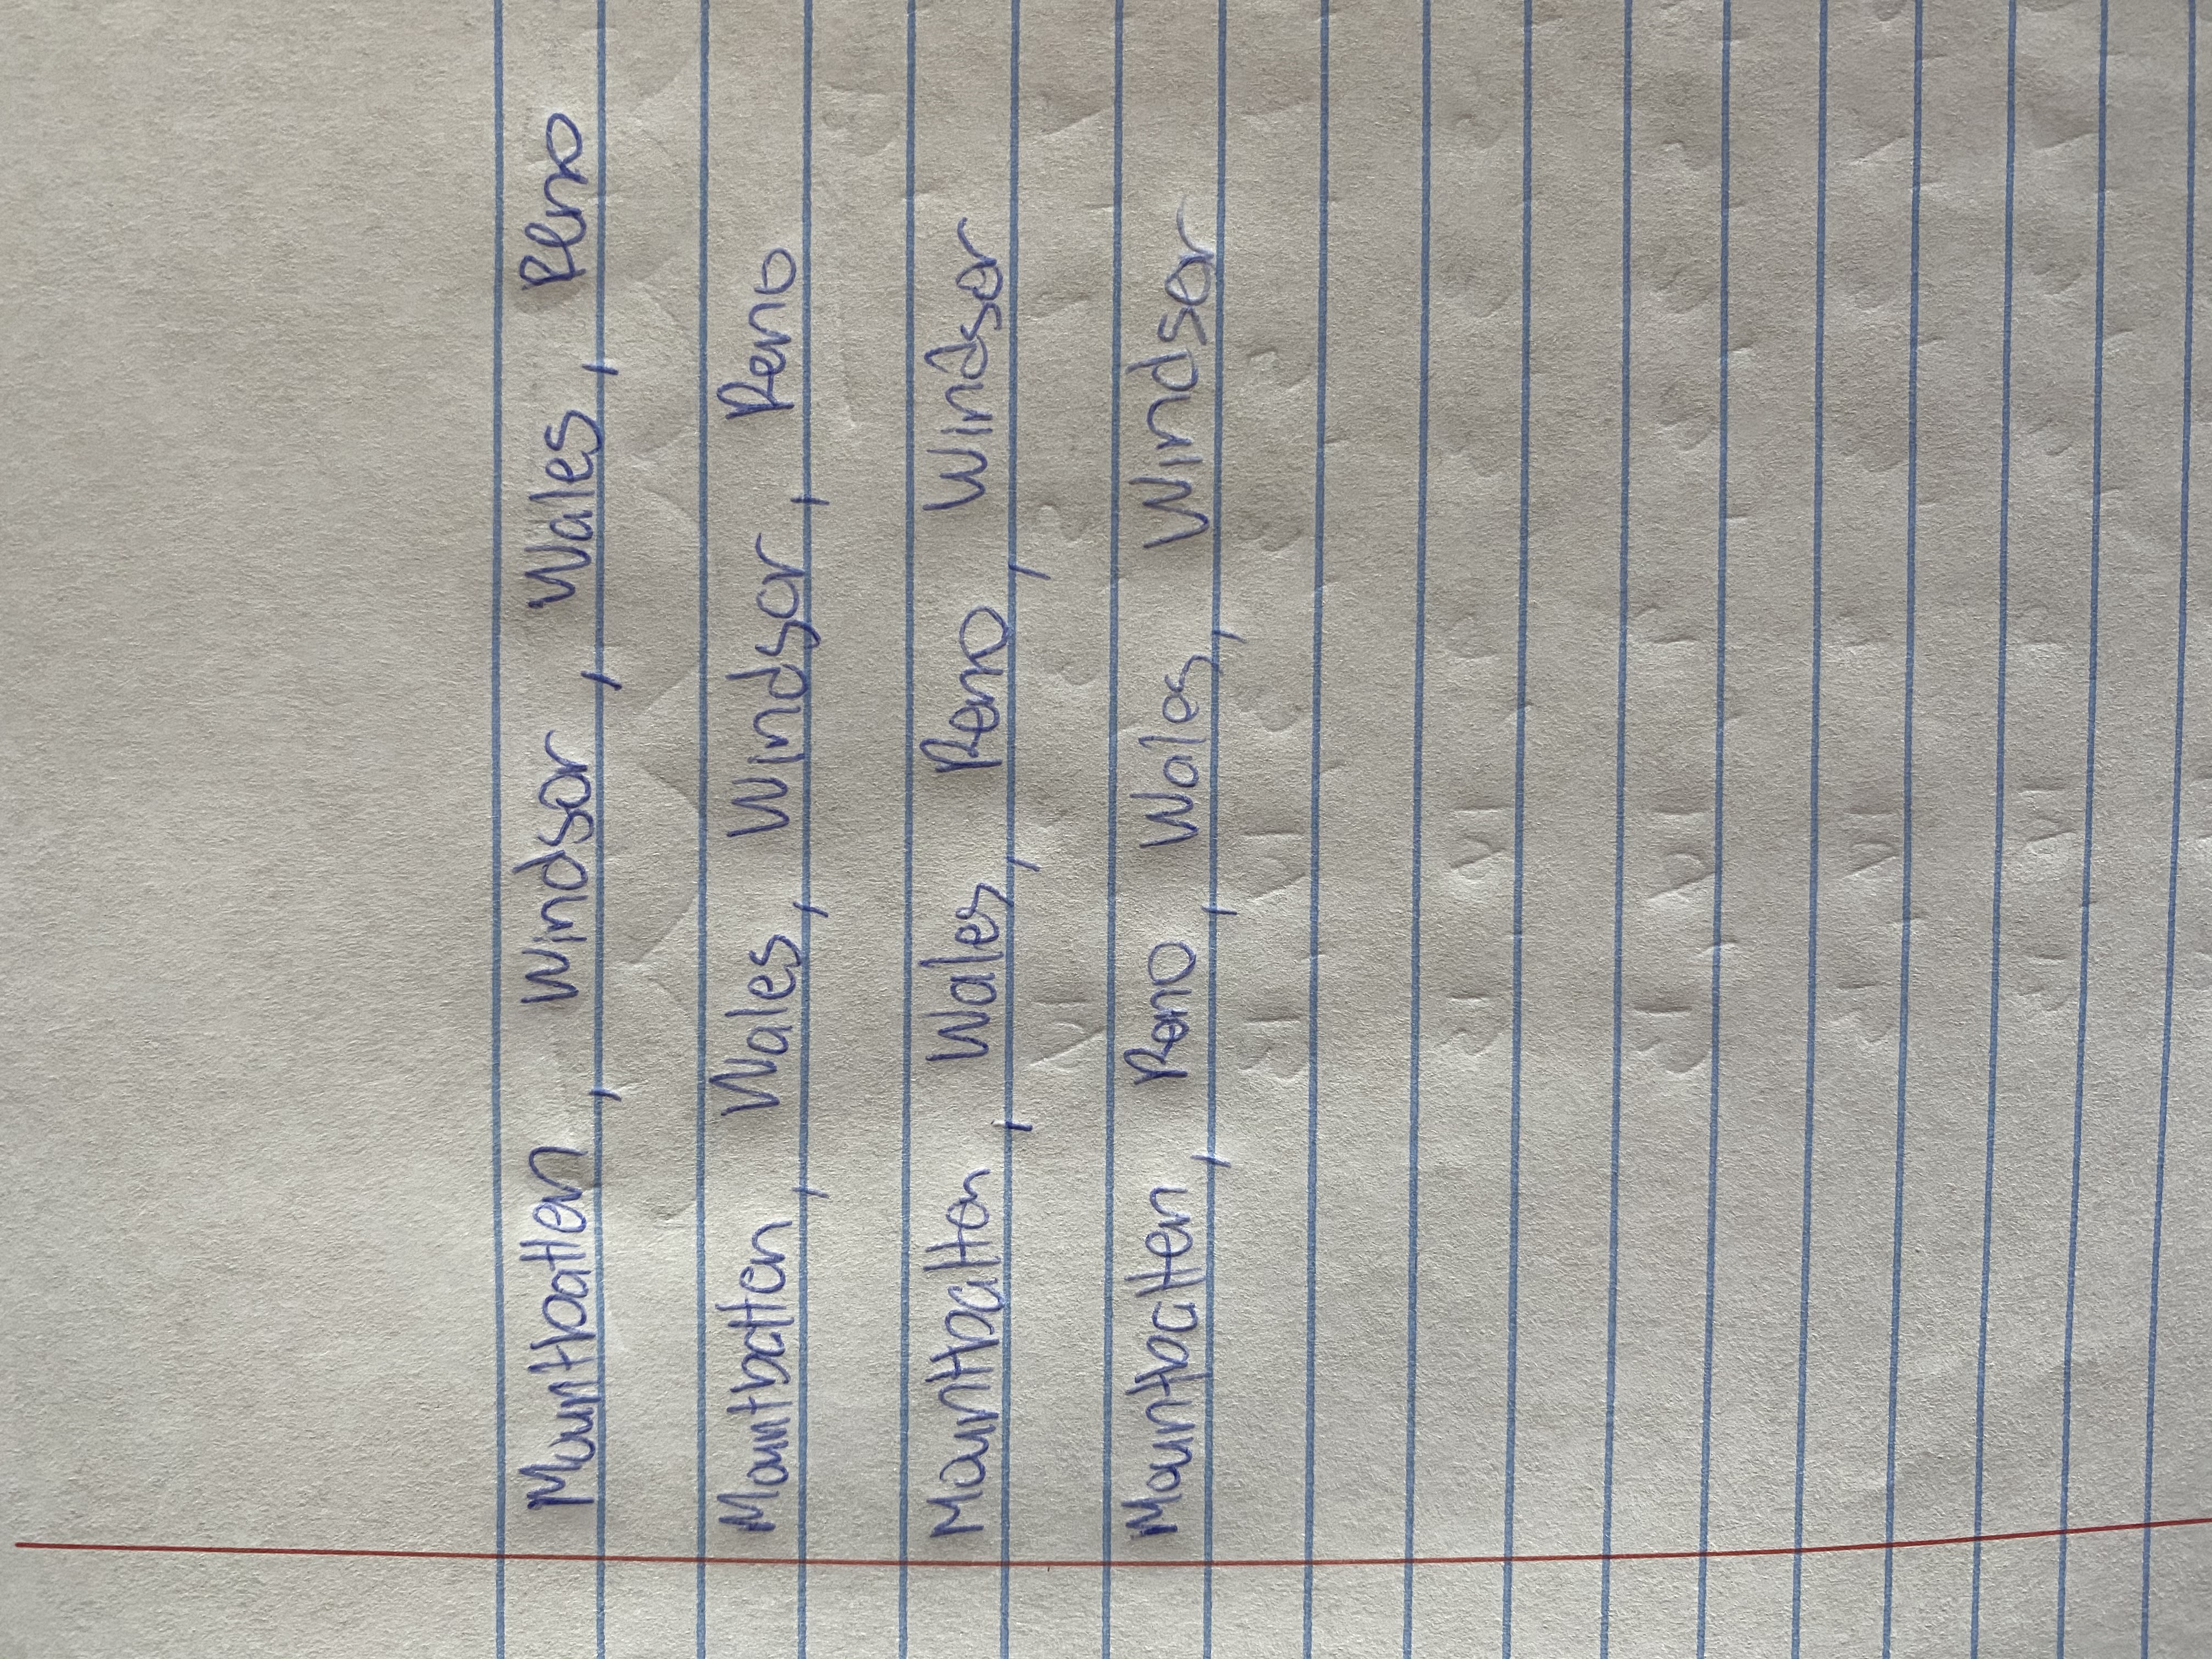 Mountbatten, Windsor, Wales, Reno
Mountbatten, Wales, Windsor, Reno
Mountbatten, Wales, Reno, Windsor
Mountbatten, Reno, Wales, Windsor